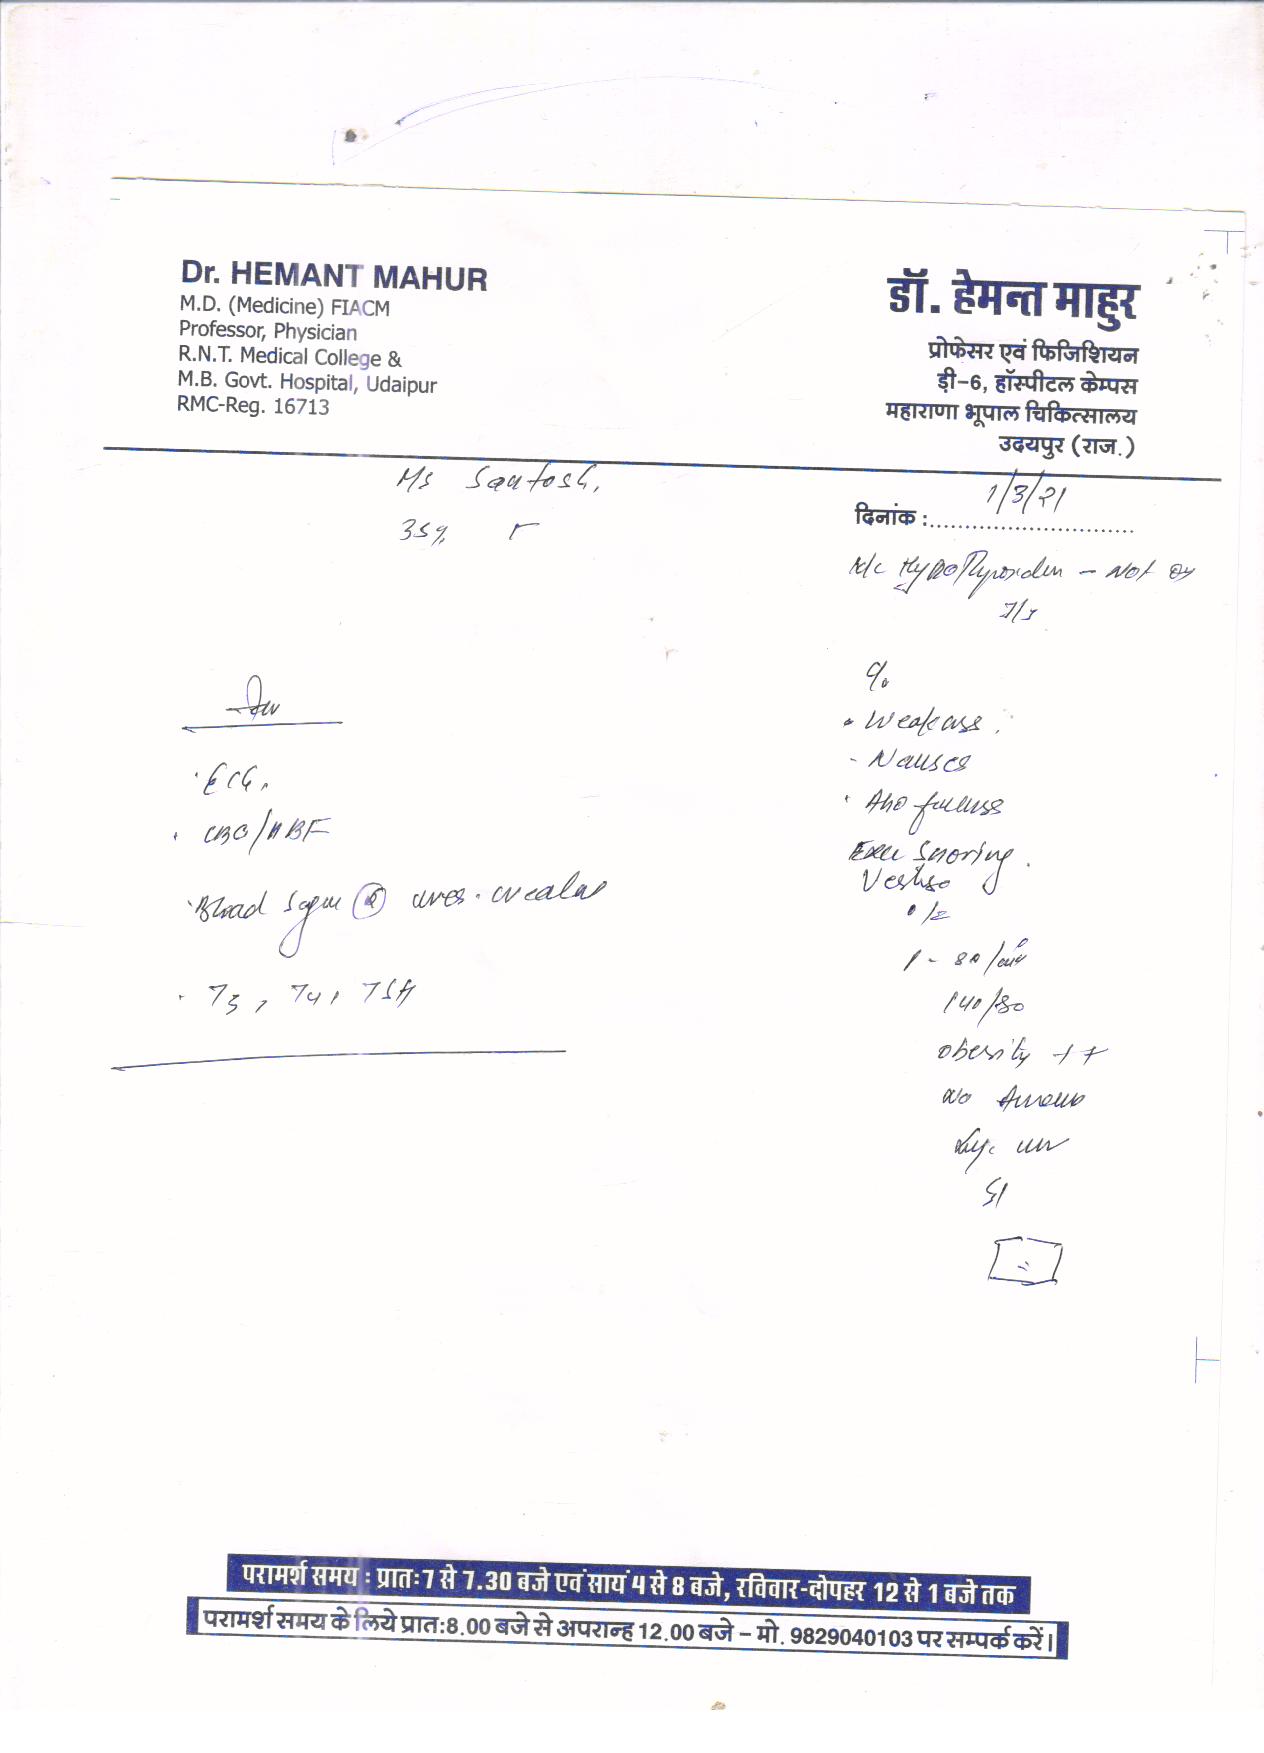 Dr. HEMANT MAHUR
M.D. (Medicine) FIACM
Professor, Physician
R.N.T. Medical College &
M.B. Govt. Hospital, Udaipur
RMC-Reg. 16713
डॉ. हेमन्त माहुर
प्रोफेसर एवं फिजिशियन
डी-6, हॉस्पीटल केम्पस
महाराणा भूपाल चिकित्सालय
उदयपुर (राज.)
Ms Santosh,
35y.
दिनांक : 1/3/21
K/c Hypothyroidism - Not on
Inv
ECG.
CBC/MBF
Blood Sugar
T3, T4, TSH
c/o
Weakness
Nausea
Abd fullness
Snoring
Vertigo
O/E
P - 80/min
140/80
obesity ++
No
S/
परामर्श समय : प्रातः7 से 7.30 बजे एवं सायं 4 से 8 बजे, रविवार-दोपहर 12 से 1 बजे तक
परामर्श समय के लिये प्रातः8.00 बजे से अपरान्ह 12.00 बजे - मो. 9829040103 पर सम्पर्क करें।